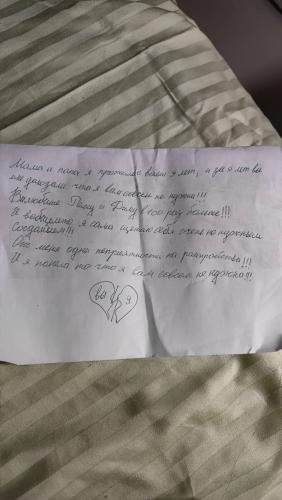 Мама и папа я прожила с вами 9 лет, и за 9 лет вы
мне доказали что я вам совсем не нужна!!!
Вы любите и Филу в сто раз больше!!!
И вообщимто, я сама щитаю себя очень не нужным
созданием!!!
От меня одна неприятности та разтройства!!!
И я поняла то что я вам совсем не нужна!!!
вы я